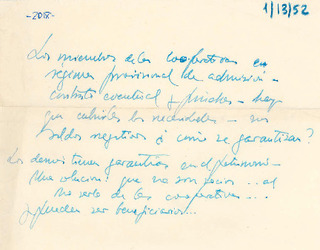 -2018-
1/13/52
Los miembros de las cooperativas en
regimen provisional de admisión -
contrato eventual y pruebas - hay
que cubrirles las necesidades - sus
saldos negativos ¿ como se garantizan?
Los demas tienen garantias en el patrimonio -
Una solucion: que no son socios ... al
no serlo de las cooperativas ...
pueden ser beneficiarios...